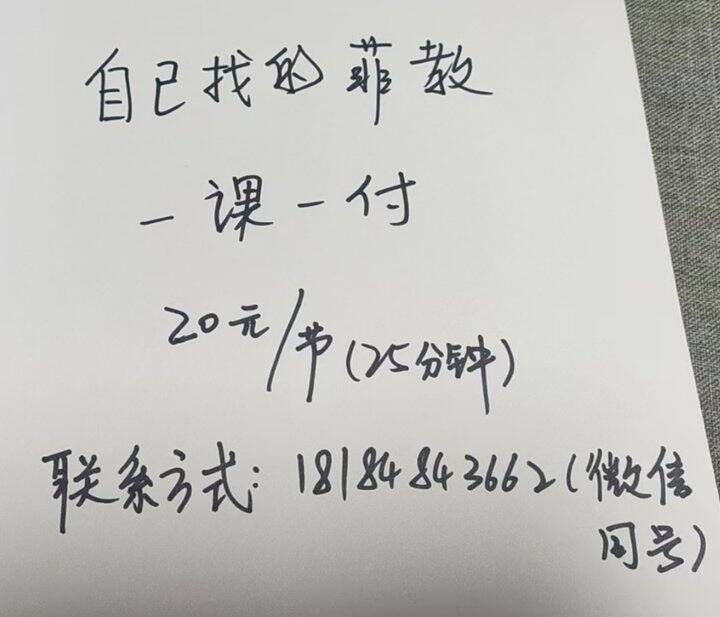 自己找的菲教
一课一付
20元/节(25分钟)
联系方式：18184843662(微信
同号)